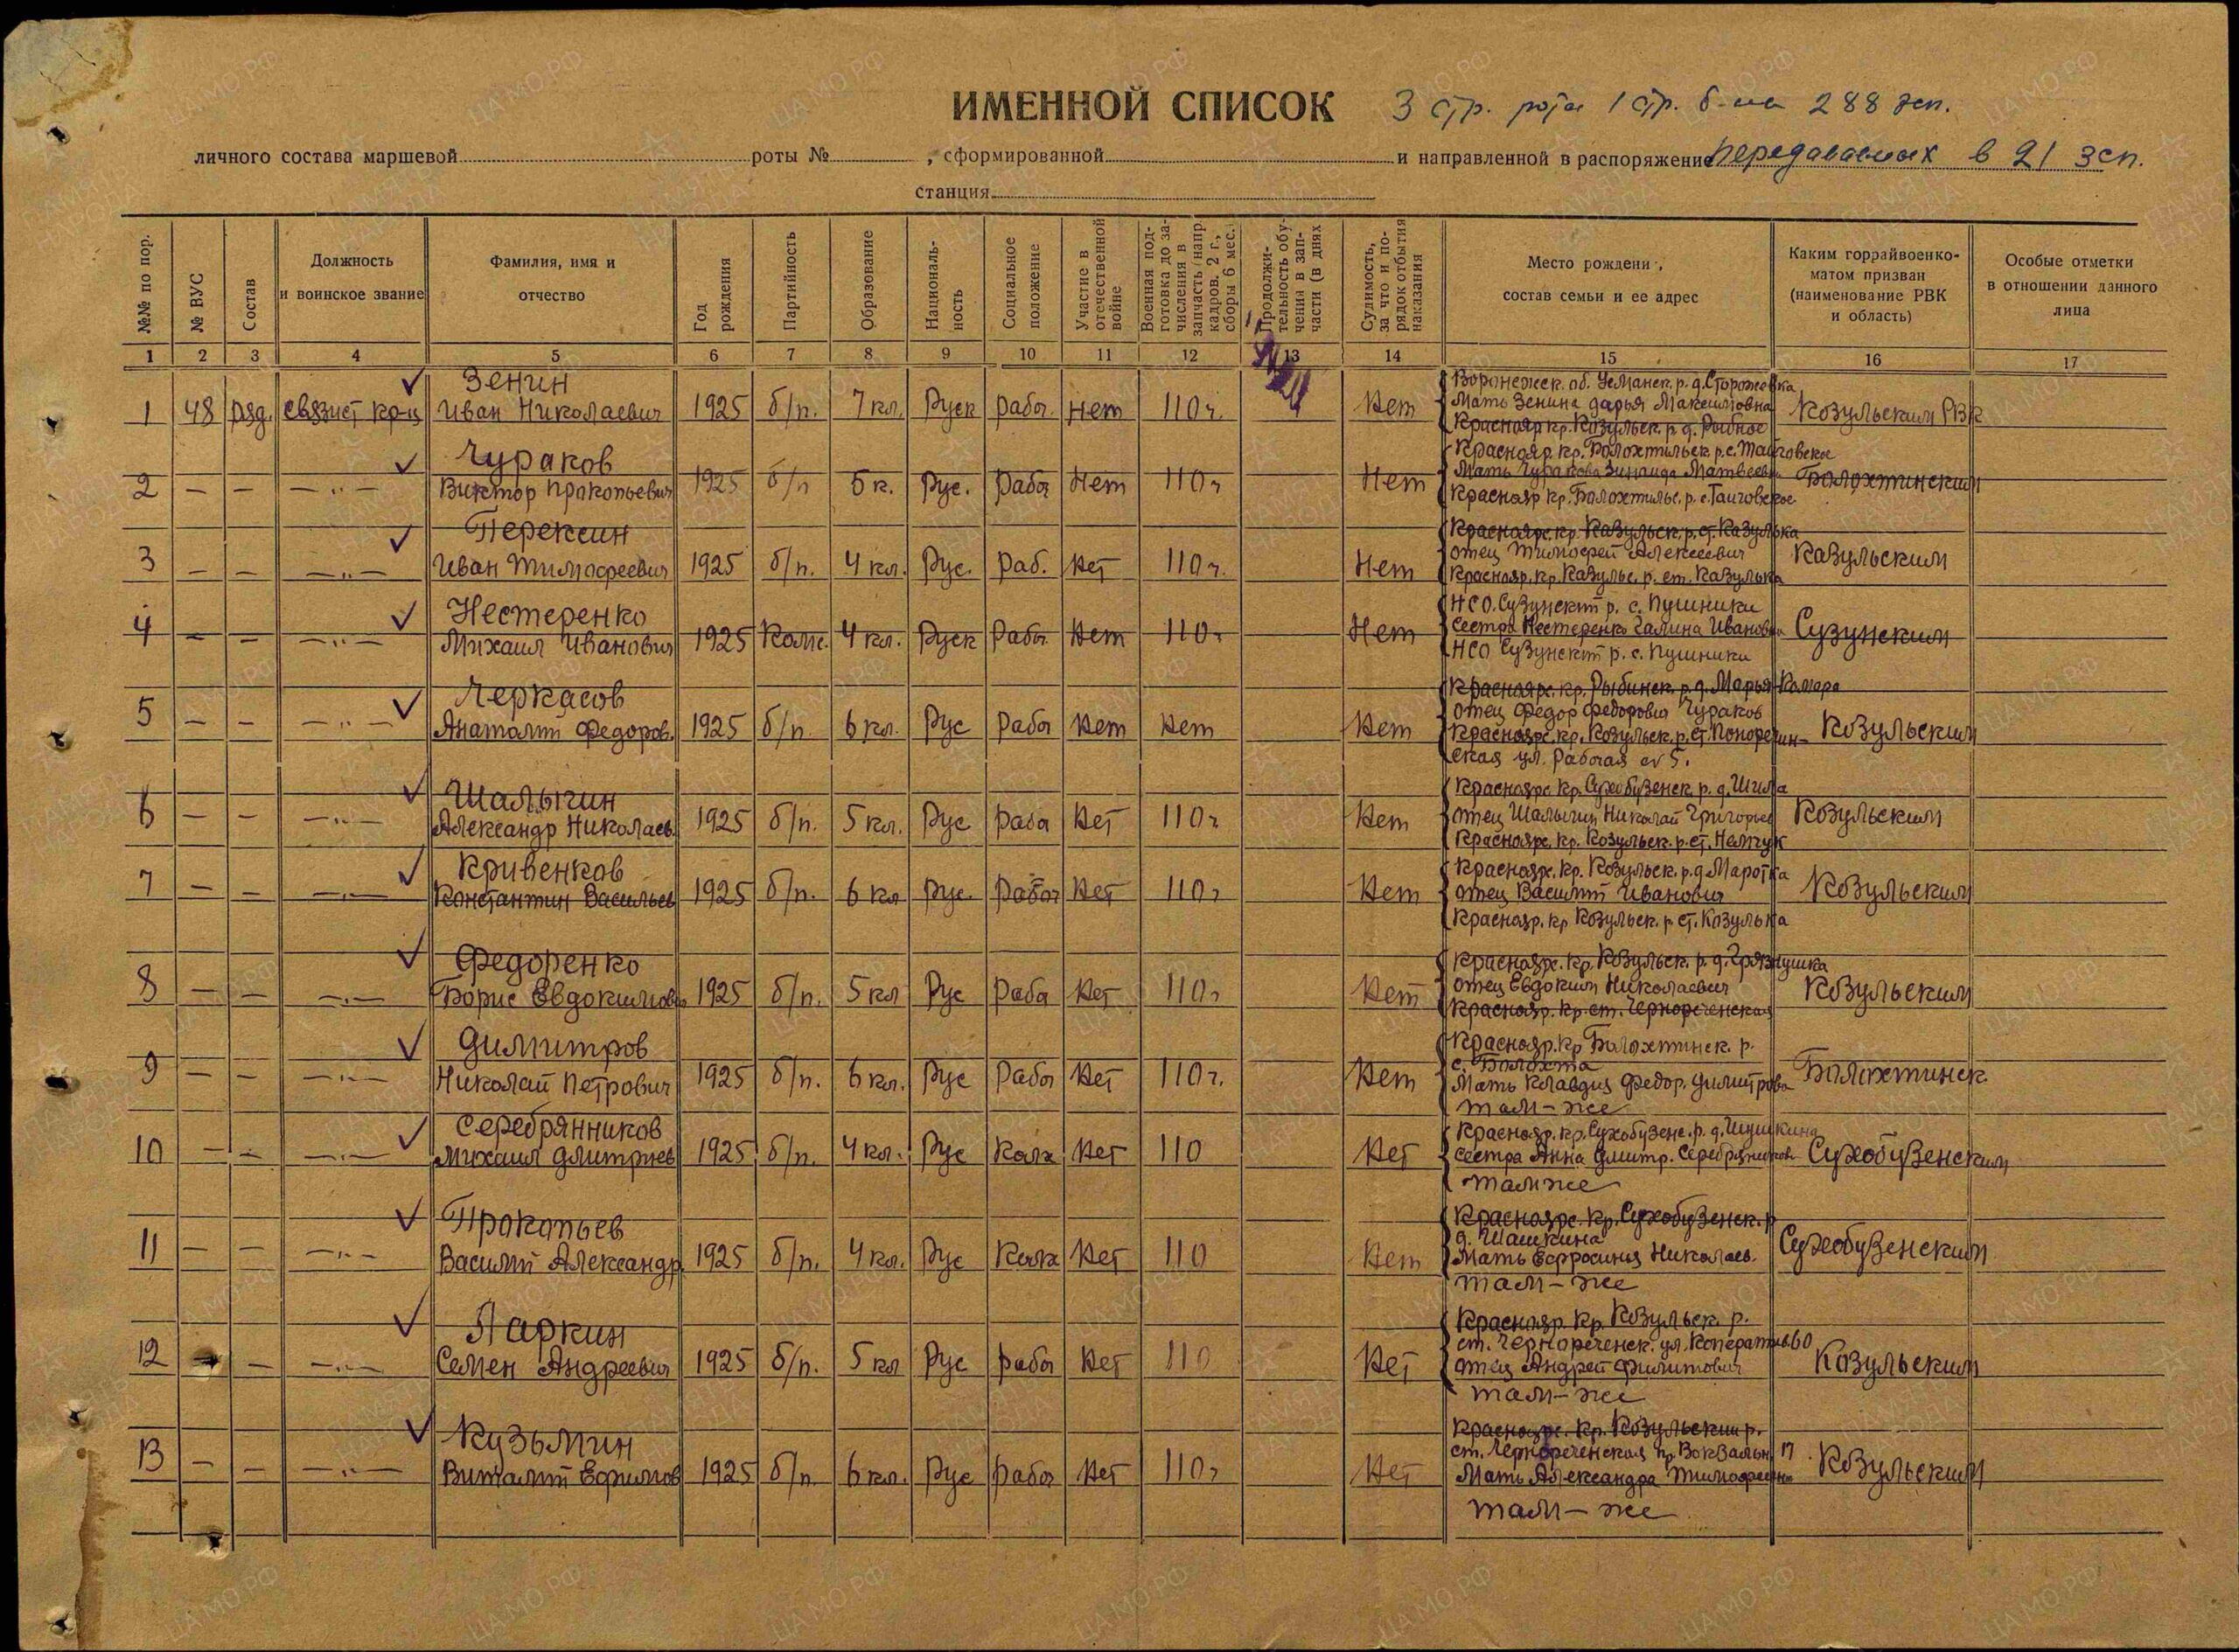 ИМЕННОЙ СПИСОК 3 стр. рота 1 стр. б-на 288 зсп.
личного состава маршевой роты № , сформированной и направленной в распоряжение передаваемых в 21 зсп.
станция
№№ по пор.
№ ВУС
Состав
Должность
и воинское звание
Фамилия, имя и
отчество
Год
рождения
Партийность
Образование
Националь-
ность
Социальное
положение
Участие в
отечественной
войне
Военная под-
готовка до за-
числения в
запчасть (напр.
кадров. 2 г.,
сборы 6 мес.)
Продолжи-
тельность обу-
чения в зап-
части (в днях
Судимость,
за что и по-
рядок отбытия
наказания
Место рождени ,
состав семьи и ее адрес
Каким горрайвоенко-
матом призван
(наименование РВК
и область)
Особые отметки
в отношении данного
лица
1 2 3 4 5 6 7 8 9 10 11 12 13 14 15 16 17
Зенин
1 48 ряд. связист кр-ц Иван Николаевич 1925 б/п. 7 кл. Руск рабоч. нет 110ч. Нет
Воронежск. об. Усманск. р. д. Сторожевка
Мать Зенина Дарья Максимовна
Краснояр кр. Козульск. р. д. Рыбное
Козульским РВК
Чураков
2 — — —"— Виктор Пракопьевич 1925 б/п 5 к. Рус. Рабоч Нет 110ч Нет
Краснояр. кр. Балохтильск р. с. Таиговское
Мать Чуракова Зинаида Матвеевн
Краснояр кр. Балохтильс. р. с. Таиговское
Балохтинским
Перексин
3 — — —"— Иван Тимофеевич 1925 б/п. 4 кл. Рус. Раб. Нет 110ч. Нет
Красноярс. кр. Казульск. р. ст. Казулька
отец Тимофей Алексеевич
Краснояр. кр. Казульс. р. ст. Казулька
Казульским
Нестеренко
4 — — —"— Михаил Иванович 1925 Комс. 4 кл. Руск Рабоч. Нет 110ч Нет
НСО. Сузунский р. с. Пушники
Сестра Нестеренко Галина Ивановна
НСО Сузунский р. с. Пушники
Сузунским
Черкасов
5 — — —"— Анатолий Федоров. 1925 б/п. 6 кл. Рус Рабоч Нет Нет Нет
Красноярс. кр. Рыбинск. р. д. Марья Камара
отец Федор Федорович Чураков
Красноярс. кр. Козульск. р. ст.
ская ул. Рабочая № 5.
Козульским
Шалыгин
6 — — —"— Александр Николаев. 1925 б/п. 5 кл. Рус Рабоч Нет 110ч Нет
Красноярс. кр. Сухобузенск. р. д. Шила
отец Шалыгин Николай Григорьев
Красноярс. кр. Козульск. р. ст.
Козульским
Кривенков
7 — — —"— Константин Васильев 1925 б/п. 6 кл Рус. Рабоч Нет 110ч Нет
Красноярс. кр. Козульск. р. д.
отец Василий Иванович
Краснояр. кр Козульск. р ст. Козулька
Козульским
Федоренко
8 — — —"— Борис Евдокимов. 1925 б/п. 5 кл Рус Рабоч Нет 110ч Нет
Красноярс. кр. Козульск. р. д. Грязнушка
отец Евдоким Николаевич
Краснояр. кр. ст. Чернореченская
Козульским
Димитров
9 — — —"— Николай Петрович 1925 б/п. 6 кл. Рус Рабоч Нет 110ч. Нет
Краснояр. кр Балохтинск. р.
с. Балохта
Мать Клавдия Федор. Димитрова
там — же
Балохтинск.
Серебрянников
10 — — —"— Михаил Дмитриев 1925 б/п. 4 кл. Рус Колх Нет 110 Нет
Краснояр. кр. Сухобузенс. р. д. Шушкина
Сестра Анна Дмитр. Серебряников
там же
Сухобузенским
Прокопьев
11 — — —"— Василий Александр. 1925 б/п. 4 кл. Рус Колх Нет 110 Нет
Красноярс. кр. Сухобузенск. р
д. Шашкина
Мать Ефросиния Николаев.
там — же
Сухобузенским
Ларкин
12 — — —"— Семен Андреевич 1925 б/п. 5 кл Рус рабоч Нет 110 Нет
Краснояр. кр. Козульск. р.
ст. Чернореченск. ул. Коператив 60
отец Андрей Филипович
там — же
Козульским
Кузьмин
13 — — —"— Виталий Ефимов 1925 б/п. 6 кл. Рус рабоч Нет 110ч Нет
Красноярс. кр. Козульский р.
ст. Чернореченская пр. Вокзальн 17
Мать Александра Тимофеевна
там — же
Козульским